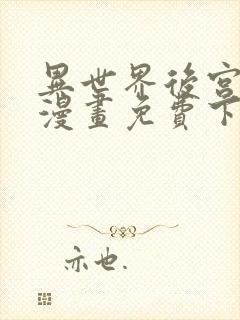 異世界後宮
漫畫免費下
亦也.